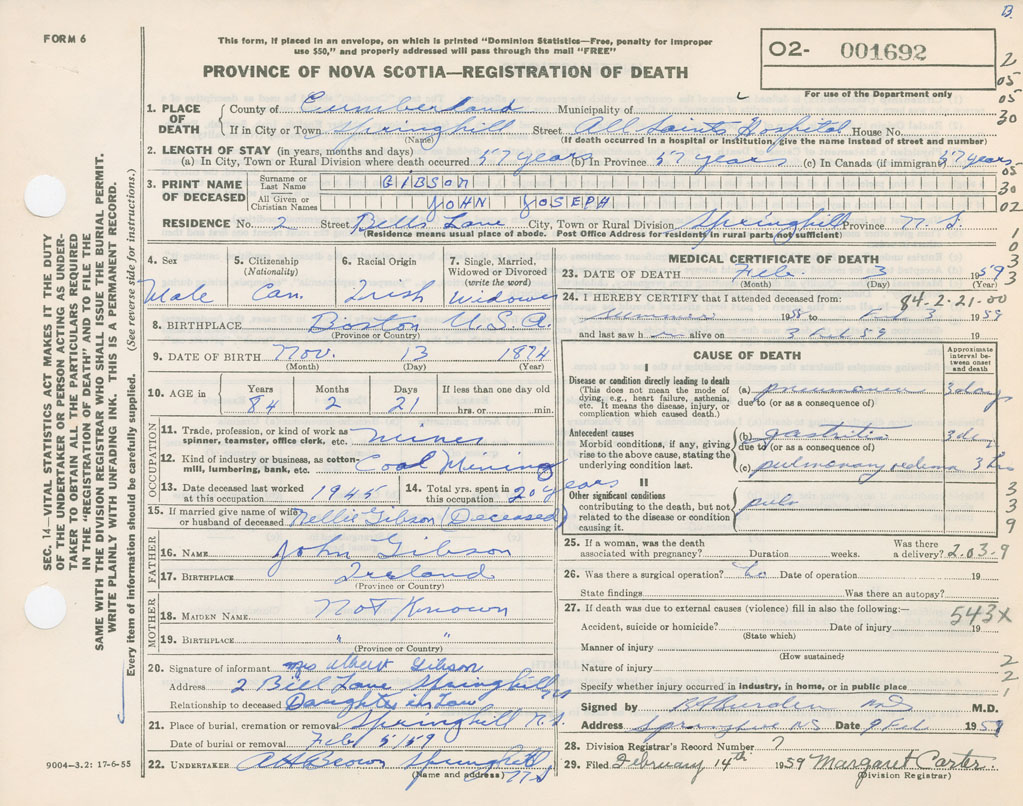 B.
FORM 6
This form, if placed in an envelope, on which is printed "Dominion Statistics—Free, penalty for improper
use $50," and properly addressed will pass through the mail "FREE"
O2- 001692
For use of the Department only
PROVINCE OF NOVA SCOTIA—REGISTRATION OF DEATH
2
05
05
30
05
30
02
1
0
3
3
1. PLACE OF DEATH County of Cumberland Municipality of
If in City or Town Springhill Street All Saints Hospital House No.
(Name) (If death occurred in a hospital or institution, give the name instead of street and number)
2. LENGTH OF STAY (in years, months and days)
(a) In City, Town or Rural Division where death occurred 57 years (b) In Province 57 years (c) In Canada (if immigrant) 57 years
3. PRINT NAME OF DECEASED Surname or Last Name GIBSON
All Given or Christian Names JOHN JOSEPH
RESIDENCE No. 2 Street Bells Lane City, Town or Rural Division Springhill Province N.S.
(Residence means usual place of abode. Post Office Address for residents in rural parts not sufficient)
SEC. 14—VITAL STATISTICS ACT MAKES IT THE DUTY
OF THE UNDERTAKER OR PERSON ACTING AS UNDER-
TAKER TO OBTAIN ALL THE PARTICULARS REQUIRED
IN THE "REGISTRATION OF DEATH" AND TO FILE THE
SAME WITH THE DIVISION REGISTRAR WHO SHALL ISSUE THE BURIAL PERMIT.
WRITE PLAINLY WITH UNFADING INK. THIS IS A PERMANENT RECORD.
Every item of information should be carefully supplied. (See reverse side for instructions.)
4. Sex 5. Citizenship (Nationality) 6. Racial Origin 7. Single, Married, Widowed or Divorced (write the word)
Male Can. Irish Widower
8. BIRTHPLACE Boston U.S.A.
(Province or Country)
9. DATE OF BIRTH Nov. 13 1874
(Month) (Day) (Year)
10. AGE in Years Months Days If less than one day old
84 2 21 hrs. or min.
OCCUPATION
11. Trade, profession, or kind of work as spinner, teamster, office clerk, etc.
12. Kind of industry or business, as cotton-mill, lumbering, bank, etc. Coal Mining
13. Date deceased last worked at this occupation 1945 14. Total yrs. spent in this occupation 20 years
15. If married give name of wife or husband of deceased Nellie Gibson (Deceased)
FATHER
16. NAME John Gibson
17. BIRTHPLACE Ireland
(Province or Country)
MOTHER
18. MAIDEN NAME Not Known
19. BIRTHPLACE " "
(Province or Country)
20. Signature of informant Mrs Albert Gibson
Address 2 Bell Lane Springhill NS
Relationship to deceased Daughter in Law
21. Place of burial, cremation or removal Springhill N.S.
Date of burial or removal Feb 5/59
22. UNDERTAKER A H Brown Springhill NS
(Name and address)
9004—3.2: 17-6-55
MEDICAL CERTIFICATE OF DEATH
23. DATE OF DEATH Feb. 3 1959
(Month) (Day) (Year)
24. I HEREBY CERTIFY that I attended deceased from: 84-2-21-00
Summer 1958 to Feb 3 1959
and last saw h alive on 3 Feb 59 19
CAUSE OF DEATH
Approximate interval between onset and death
I
Disease or condition directly leading to death
(This does not mean the mode of dying, e.g., heart failure, asthenia, etc. It means the disease, injury, or complication which caused death.)
(a) pneumonia 3 days
due to (or as a consequence of)
Antecedent causes
Morbid conditions, if any, giving rise to the above cause, stating the underlying condition last.
(b) gastritis
due to (or as a consequence of)
(c) pulmonary edema 3 hrs
II
Other significant conditions
contributing to the death, but not related to the disease or condition causing it.
3
3
9
25. If a woman, was the death associated with pregnancy? Duration weeks. Was there a delivery? 2.03.9
26. Was there a surgical operation? Date of operation 19
State findings Was there an autopsy?
27. If death was due to external causes (violence) fill in also the following:— 543X
Accident, suicide or homicide? Date of injury 19
(State which)
Manner of injury
(How sustained)
Nature of injury
2
2
1
Specify whether injury occurred in industry, in home, or in public place
Signed by M.D.
Address Springhill NS Date 9 Feb 1959
28. Division Registrar's Record Number 7
29. Filed February 14th 1959 Margaret Carter
(Division Registrar)